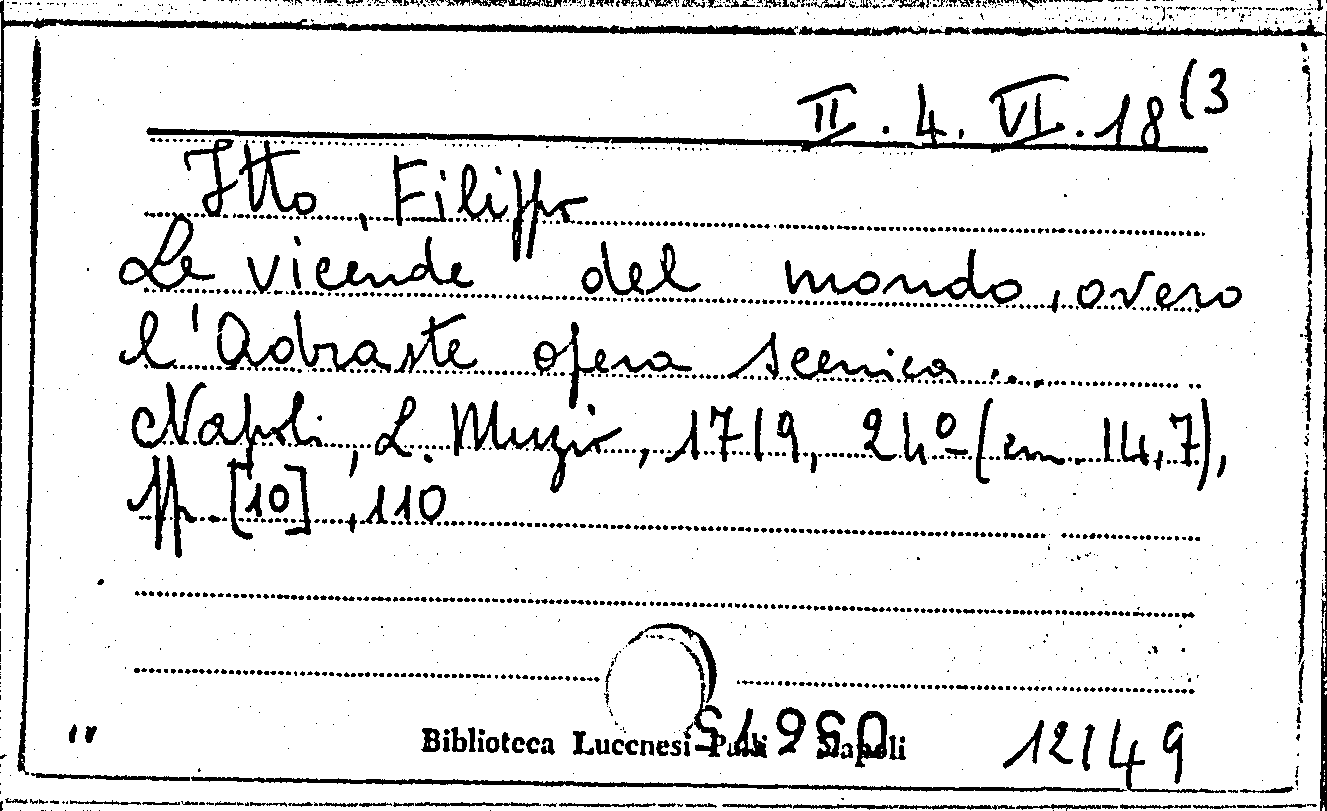 II. 4. VI. 18(3
Itto, Filippo
Le vicende del mondo, overo
l'Adraste opera scenica...
Napoli, L. Muzio, 1719, 24º (cm. 14,7),
pp. [10], 110
Biblioteca Lucchesi-Palli Napoli
12149